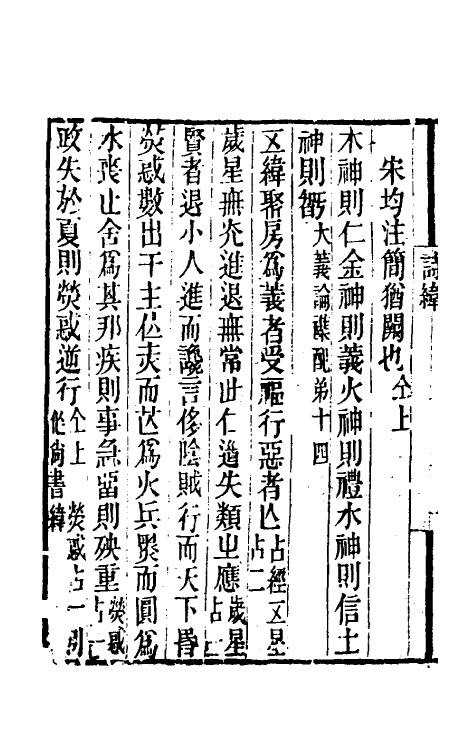 詩緯
宋均注簡猶闕也仝上
木神則仁金神則義火神則禮水神則信土
神則智大義論襍配弟十四
五緯聚房為義者受福行惡者亾占經五星占二
歲星無光進退無常此仁道失類之應歲星占一
賢者退小人進而讒言侈陰賊行而天下昏
熒惑數出干主位赤而芒為火兵黑而圓為
水喪止舍為其邦疾則事急留則殃重熒惑占一
政失於夏則熒惑逆行仝上 熒惑占一引作尚書緯